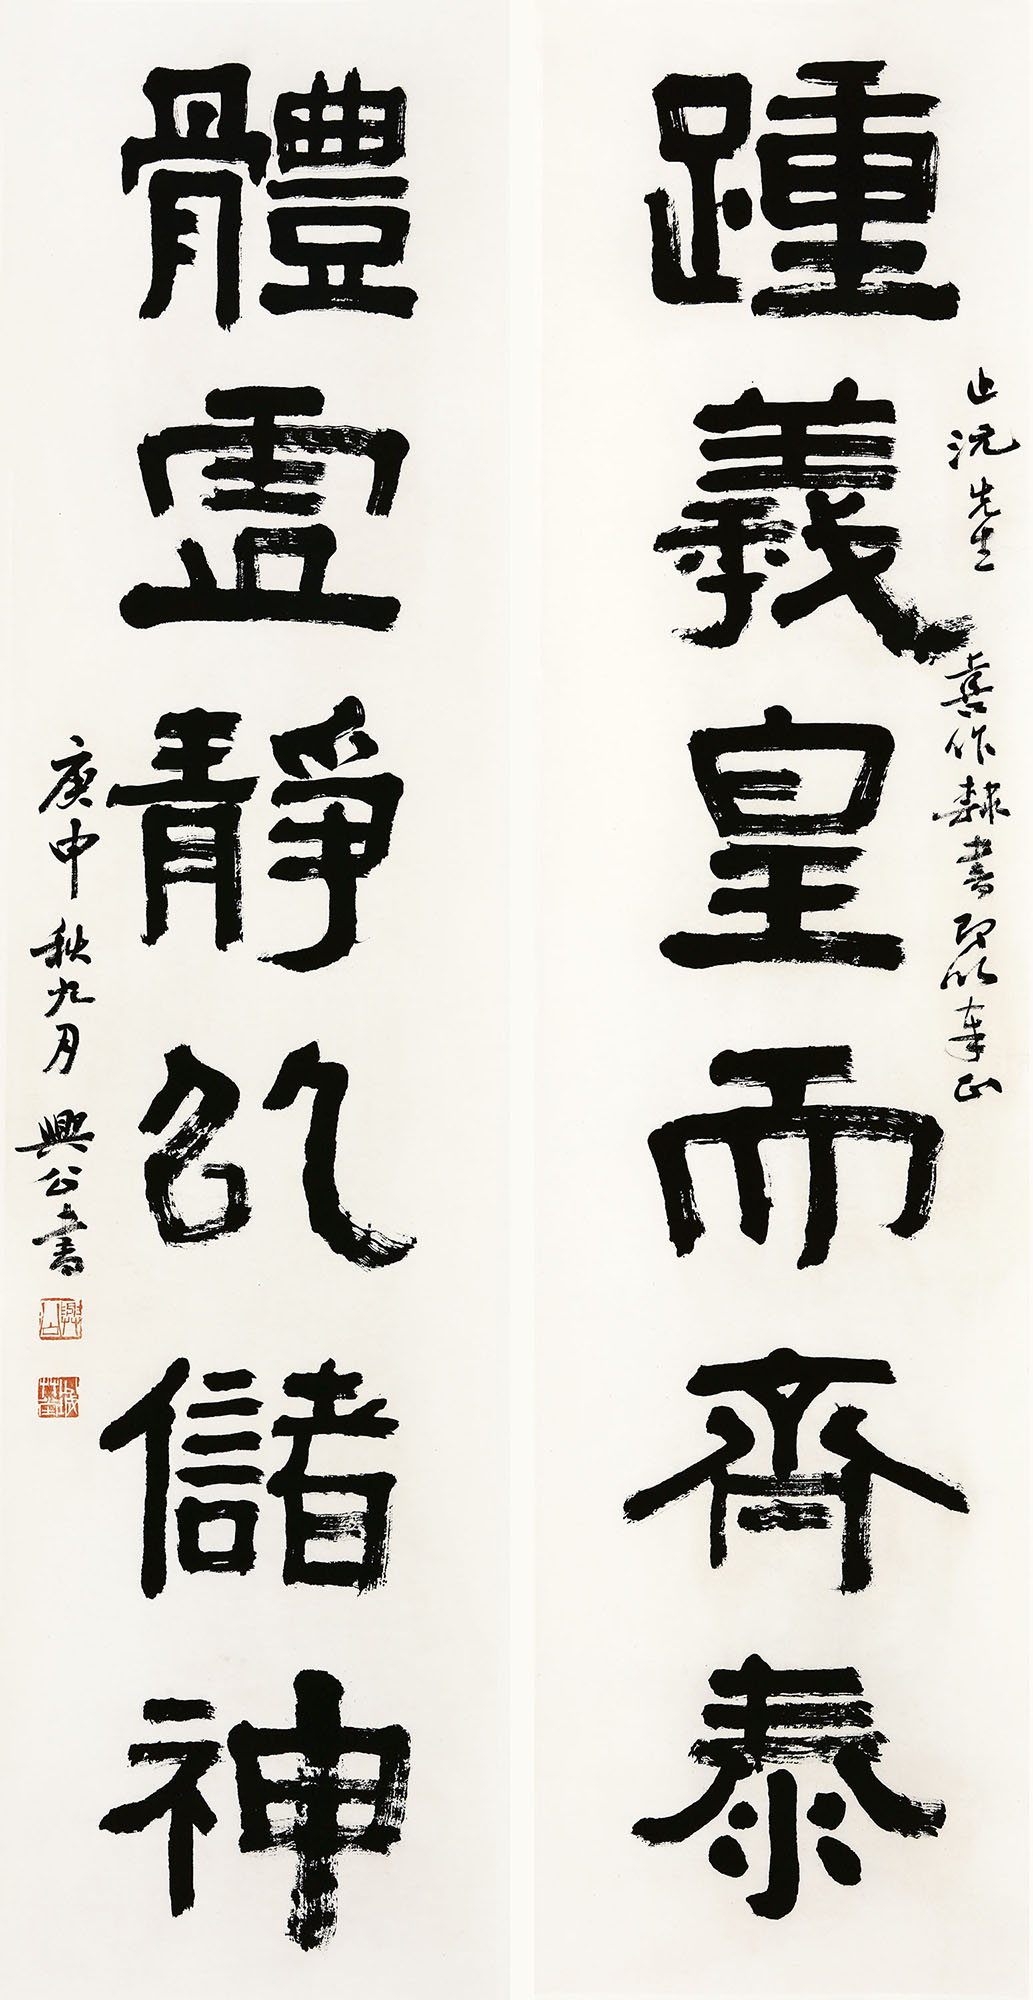 踵羲皇而齊泰
止先生 喜作隸書即以奉正
體虛靜以儲神
庚申秋九月 興公書
興公